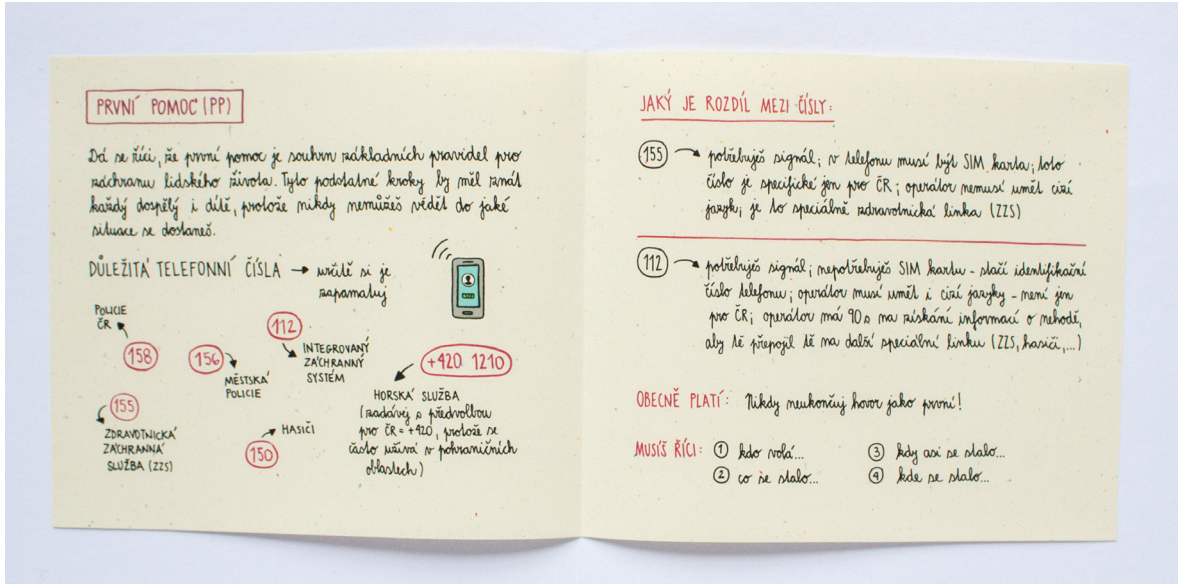 PRVNÍ POMOC (PP)
Dá se říci, že první pomoc je souhrn základních pravidel pro
záchranu lidského života. Tyto podstatné kroky by měl znát
každý dospělý i dítě, protože nikdy nemůžeš vědět do jaké
situace se dostaneš.
DŮLEŽITÁ TELEFONNÍ ČÍSLA → určitě si je
zapamatuj
POLICIE
ČR
158
156
MĚSTSKÁ
POLICIE
112
INTEGROVANÝ
ZÁCHRANNÝ
SYSTÉM
+420 1210
HORSKÁ SLUŽBA
(zadávej s předvolbou
pro ČR = +420, protože se
často užívá v pohraničních
oblastech)
155
ZDRAVOTNICKÁ
ZÁCHRANNÁ
SLUŽBA (ZZS)
150
HASIČI
JAKÝ JE ROZDÍL MEZI ČÍSLY:
155 → potřebuješ signál; v telefonu musí být SIM karta; toto
číslo je specifické jen pro ČR; operátor nemusí umět cizí
jazyk; je to speciálně zdravotnická linka (ZZS)
112 → potřebuješ signál; nepotřebuješ SIM kartu - stačí identifikační
číslo telefonu; operátor musí umět i cizí jazyky - není jen
pro ČR; operátor má 90s na získání informací o nehodě,
aby tě přepojil tě na další speciální linku (ZZS, hasiči,...)
OBECNĚ PLATÍ: Nikdy neukončuj hovor jako první!
MUSÍŠ ŘÍCI: 1 kdo volá... 3 kdy asi se stalo...
2 co se stalo... 4 kde se stalo...